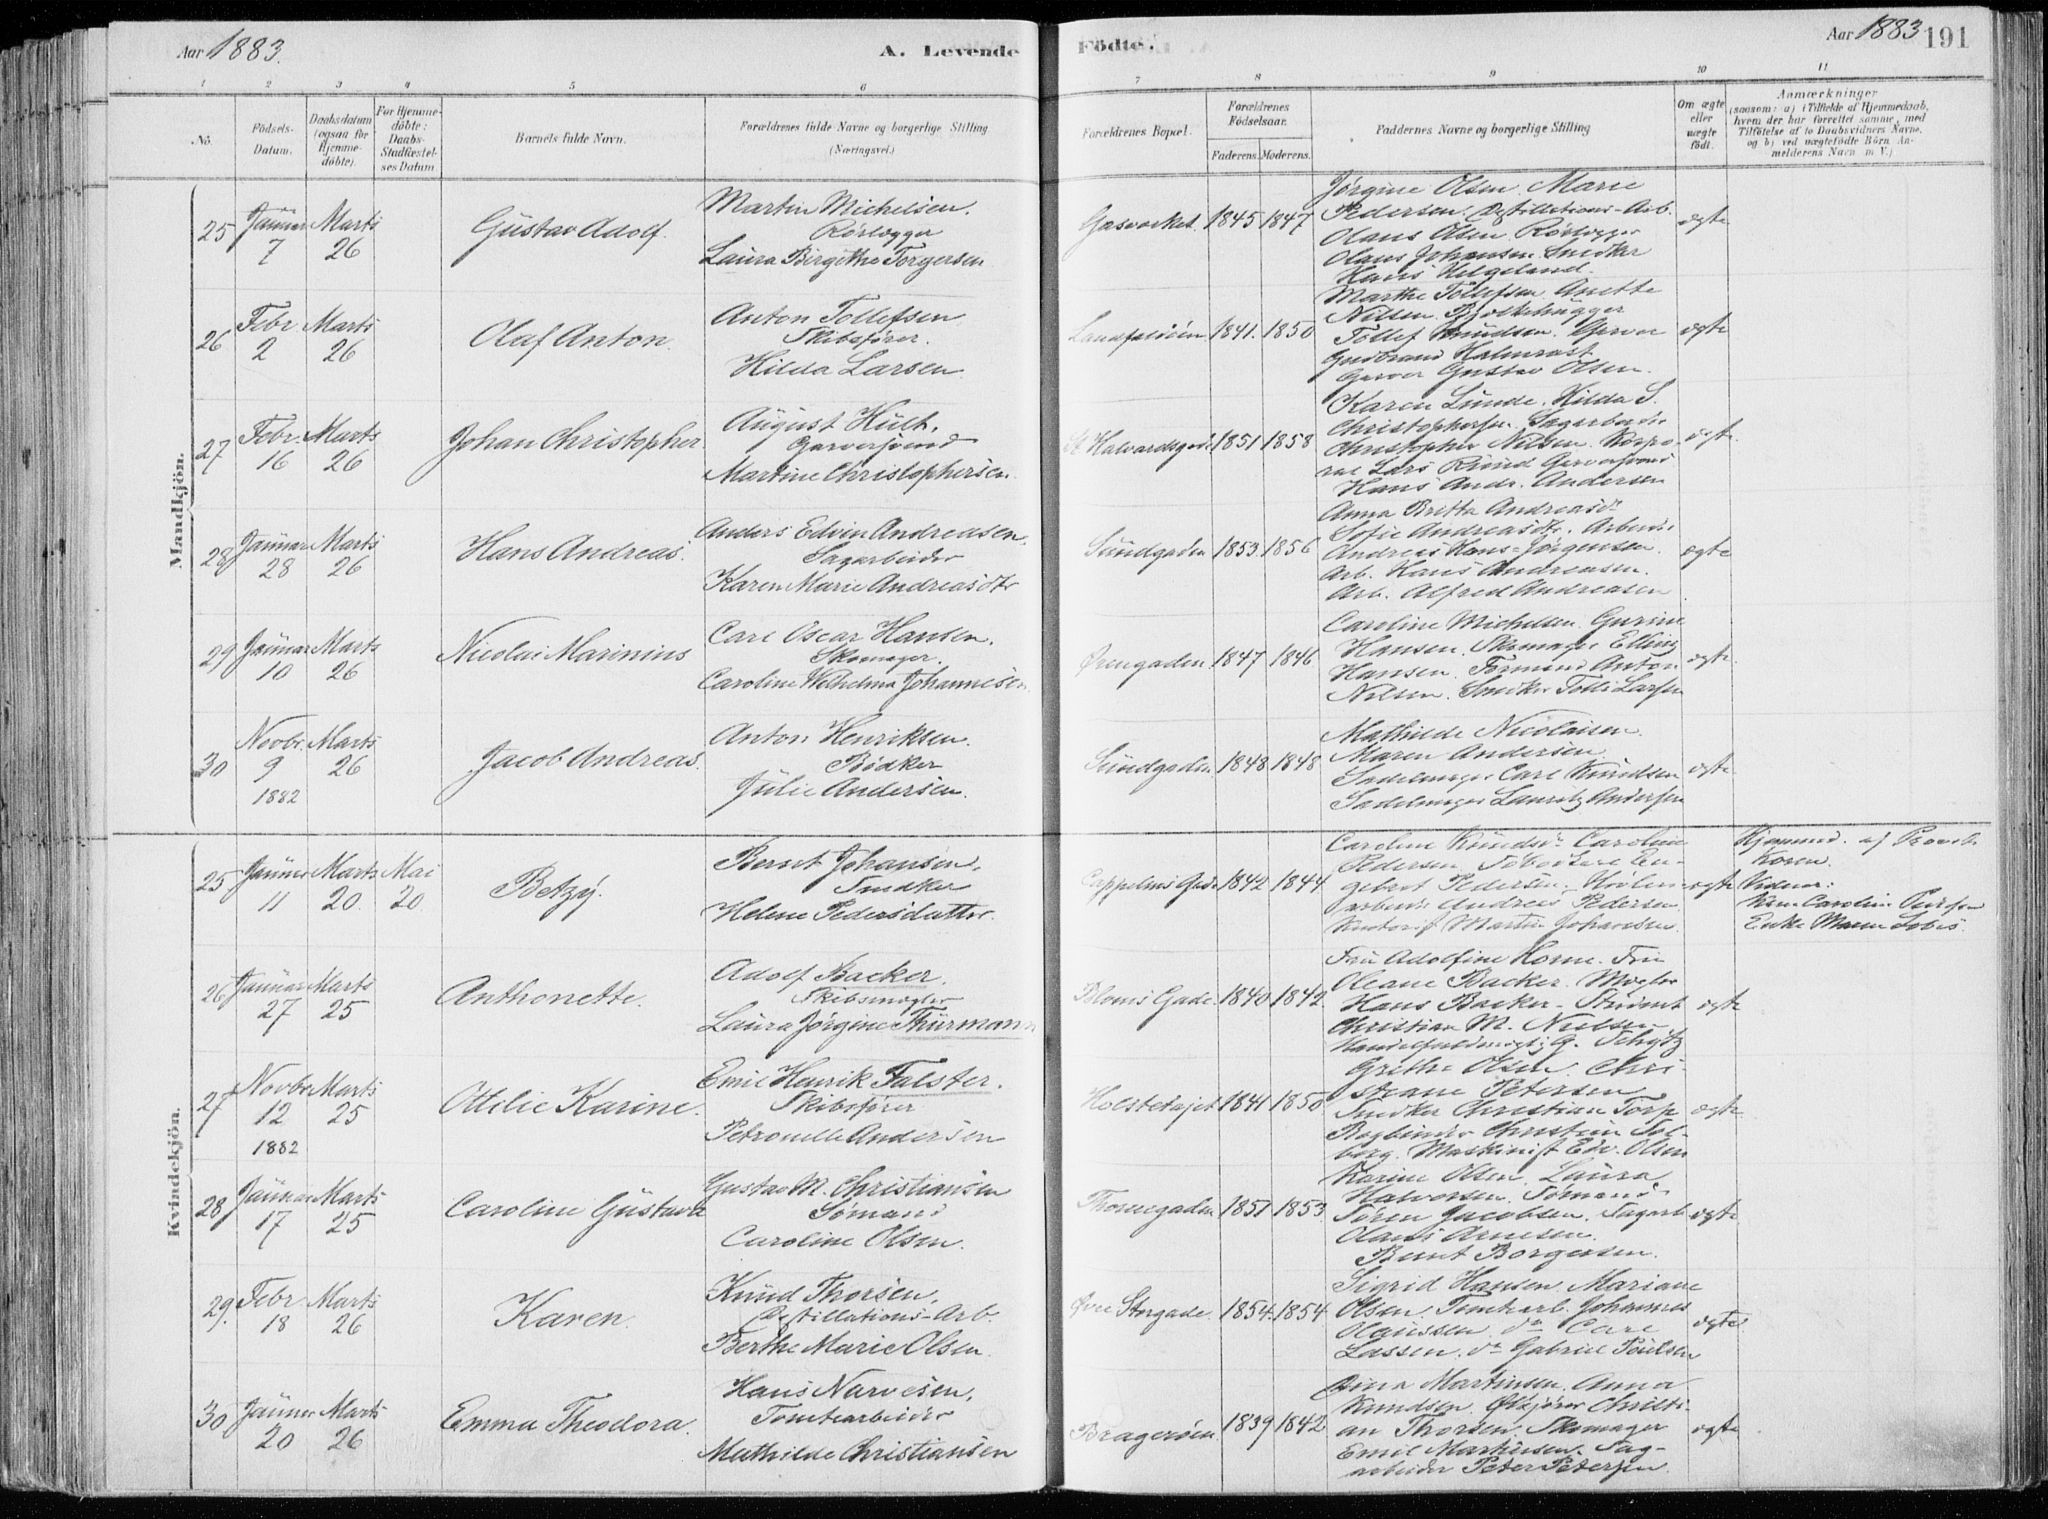 Aar 1883.
A. Levende
Födte.
Aar 1883
191
1 2 3 4 5 6 7 8 9 10 11
No.
Födsels-
Datum.
Daabsdatum
(ogsaa for
Hjemme-
döbte).
For Hjemme-
döbte:
Daabs-
Stadfæstel-
ses Datum
Barnets fulde Navn.
Forældrenes fulde Navne og borgerlige Stilling
(Næringsvei.)
Forældrenes Bopæl.
Forældrenes
Födselsaar.
Faderens. Moderens.
Faddernes Navne og borgerlige Stilling
Om ægte
eller
uægte
födt.
Anmærkninger
(saasom: a) i Tilfælde af Hjemmedaab,
hvem der har forrettet samme, med
Tilföielse af to Daabsvidners Navne,
og b) ved uægtefödte Börn, An-
melderens Navn m. V.)
Mandkjön.
25
Januar
7
Marts
26
Gustav Adolf.
Martin Michelsen.
Rørlægger
Laura Birgithe Torgersen
Gasværket 1845 1847
Jørgine Olsen. Marie
Pedersen. Destillations-Arb.
Olaus Olsen. Rørlægger
Olaus Johansen. Snedker
Hans Helgeland.
ægte
26
Febr
2
Marts
26
Olaf Anton.
Anton Tollefsen
Skibsfører.
Hilda Larsen
Landfaldöen 1841. 1850
Marthe Tollefsen Anette
Nilsen. Bjelkehugger
Tollef Knudsen. Garver
Gudbrand Halmrast
Garver Gustav Olsen.
ægte
27
Febr.
16
Marts
26
Johan Christopher.
August Hult.
Garversvend
Martine Christophersen.
St Halvardsgade 1851 1858
Karen Lunde. Hilda S.
Christophersen. Sagarbeider
Christopher Nilsen. Korpo-
ral Lars Rund Garversvend
Hans Andr. Andersen
ægte.
28
Januar
28
Marts
26
Hans Andreas.
Anders Edvin Andreasen.
Sagarbeider
Karen Marie Andreasdtr
Sundgaden 1853. 1856
Anna Britta Andreasdr
Sofie Andreasdtr. Arbeider
Andreas Hans-Jørgenssen.
Arb. Hans Andreasen.
Arb. Alfred Andreasen.
ægte
29
Januar
10
Marts
26
Nicolai Marinius
Carl Oscar Hansen.
Skomager.
Caroline Wilhelmine Johannesen
Ørengaden 1847 1846
Caroline Michelsen. Gurine
Hansen. Skomager Elling
Hansen. Formand Anton
Nilsen. Snedker Tolli Larsen
ægte.
30
Novbr.
9
1882
Marts
26
Jacob Andreas.
Anton Henriksen.
Bødker
Julie Andersen.
Sundgaden 1848 1848
Mathilde Nicolaisen.
Maren Andersen
Sadelmager Carl Knudsen
Sadelmager Lauritz Andersen
ægte
Kvindekjön.
25
Januar
11
Marts
20.
Mai
20.
Betzy.
Bernt Johansen.
Snedker
Helene Pedersdatter.
Cappelens Gade 1842 1844
Caroline Knudsen Caroline
Pedersen.
gebret Pedersen. Høvleri-
arbeider Andreas Pedersen.
Kontorist Martin Johansen.
ægte
Hjemmed. af Provst
Koren.
Vidner:
Caroline Pedersen
Enke Maren
26
Januar
27
Marts
25
Anthonette.
Adolf Backer.
Skibsmægler
Laura Jørgine Thurmann
Bloms Gade. 1840 1842
Fru Adolfine Horne. Fru
Oleane Backer. Mægler
Hans Backer. Student
Christian M. Nielsen
Handelsfuldmægtig G. Schøtz
ægte
27
Novbr
12
1882
Marts
25
Ottilie Karine.
Emil Henrik Falster.
Skibsfører
Petronelle Andersen
Holstetajet 1841 1850
Grethe Olsen. Chri-
stiane Petersen
Snedker Christian Torp
Bogbinder Christian Sol-
berg. Maskinist Edv. Olsen
ægte
28
Januar
17
Marts
25
Caroline Gustava
Gustav M. Christiansen
Sømand
Caroline Olsen.
Thornegaden 1851 1853
Karine Olsen. Laura
Halvorsen. Sømand
Søren Jacobsen. Sagarb.
Olaus Arnesen.
Bernt Borgersen.
ægte.
29.
Febr.
18
Marts
26
Karen.
Knud Thorsen.
Destillations-Arb.
Berthe Marie Olsen.
Øvre Storgade. 1854. 1854
Sigrid Hansen. Mariane
Olsen. Tomtearb. Johannes
Olaussen. do Carl
Lassen. do Gabriel Poulsen
ægte
30
Januar
20
Marts
26
Emma Theodora.
Hans Narvesen.
Tomtearbeider
Mathilde Christiansen
Bragerøen 1839 1842
Dina Martinsen. Anna
Knudsen. Christi-
an Thorsen. Skomager
Emil Martinsen. Sag-
arbeider Peter Petersen.
ægte.